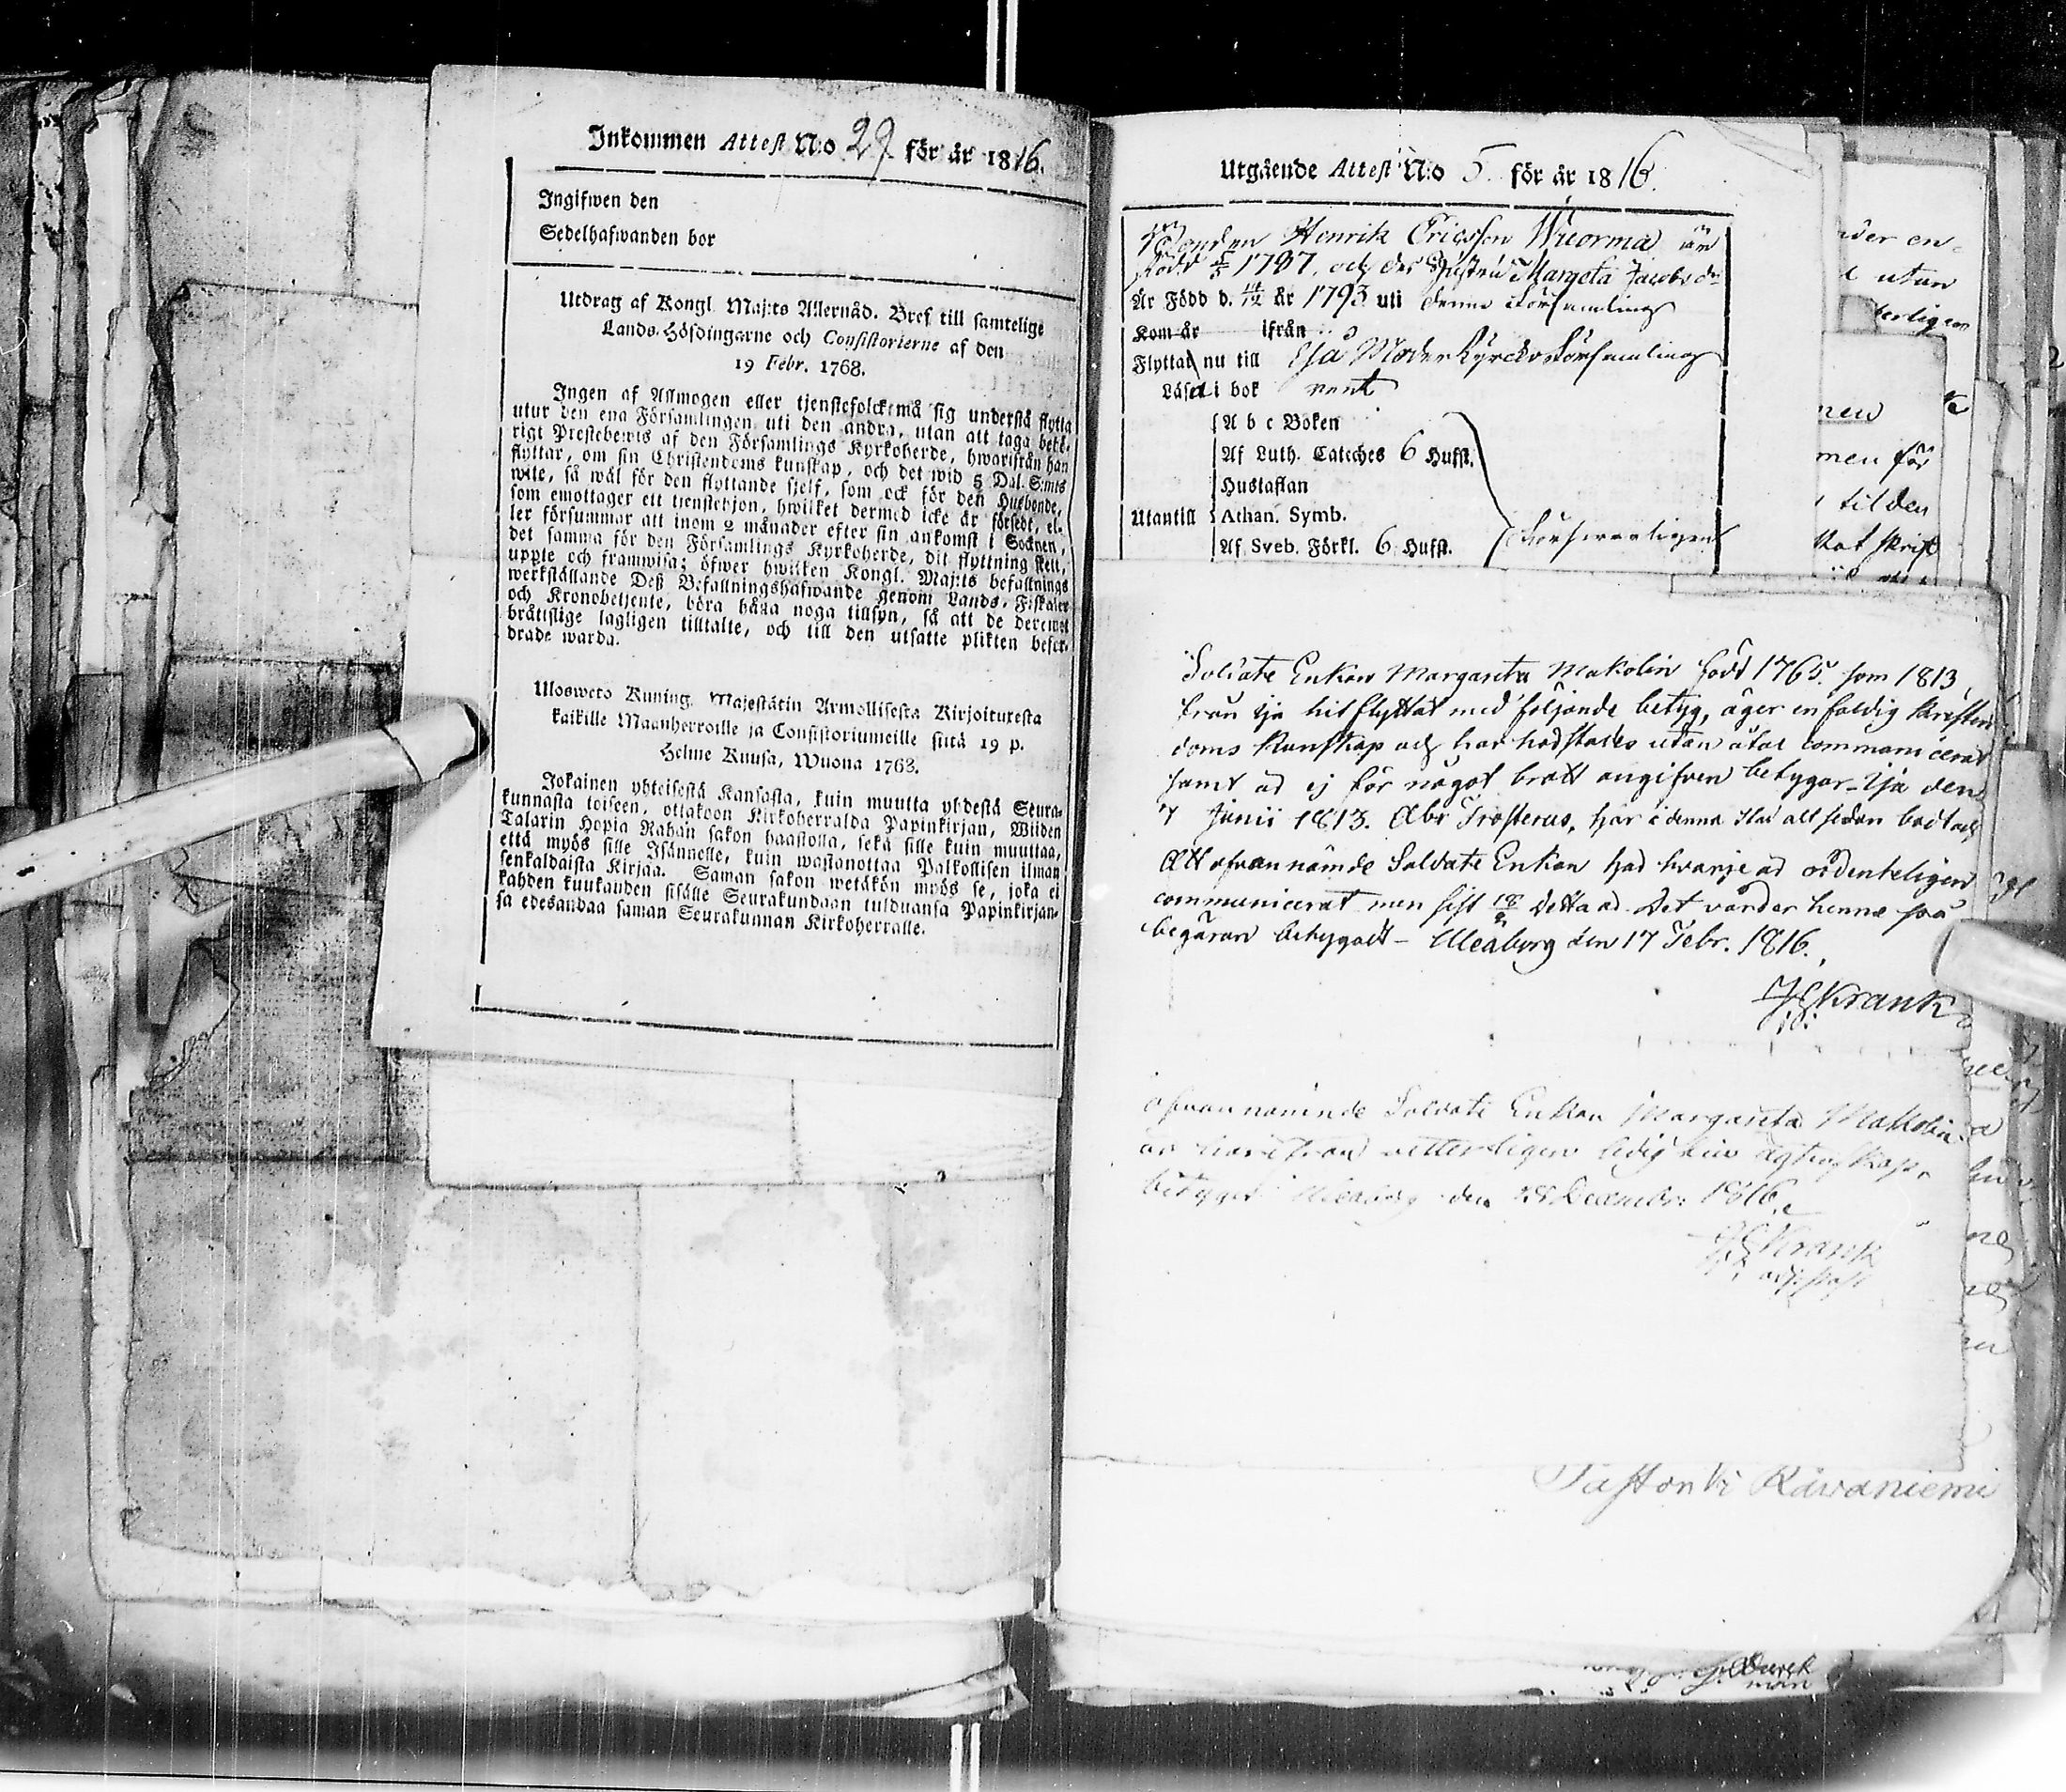 Inkommen Attest N:o 29. för år 1816.
Ingifwen den
Sedelhafwanden bor
Utdrag af Kongl. Maj:ts Allernåd. Bref till samtelige
Lands-Höfdingarne och Consistorierne af den
19 Febr. 1768.
Ingen af Allmogen eller tjenstefolcket må sig understå flytta
utur den ena Församlingen uti den andra, utan att taga behö-
rigt Prestebewis af den Församlings Kyrkoherde, hwarifrån han
flyttar, om sin Christendoms kunskap, och det wid 5 Dal. S:mts
wite, så wäl för den flyttande sjelf, som ock för den Husbonde,
som emottager ett tjenstehjon, hwilket dermed icke är försedt, el-
ler försummar att inom 2 månader efter sin ankomst i Socknen,
det samma för den Församlings Kyrkoherde, dit flyttning skett,
uppte och framwisa; öfwer hwilken Kongl. Maj:ts befallnings
werkställande Deß Befallningshafwande genom Lands-Fiskaler
och Kronobetjente, böra hålla noga tillsyn, så att de deremot
bråttslige lagligen tilltalte, och till den utsatte plikten befor-
drade warda.
Ulosweto Kuning. Majestätin Armollisesta Kirjoituxesta
kaikille Maanherroille ja Consistoriumeille siitä 19 p.
Helme Kuusa, Wuona 1768.
Jokainen yhteisestä Kansasta, kuin muutta yhdestä Seura-
kunnasta toiseen, ottakoon Kirkoherralda Papinkirjan, Wiiden
Talarin Hopia Rahan sakon haastolla, sekä sille kuin muuttaa,
että myös sille Isännelle, kuin wastanottaa Palkollisen ilman
senkaldaista Kirjaa. Saman sakon wetäkön myös se, joka ei
kahden kuukauden sisälle Seurakundaan tulduansa Papinkirjan-
sa edesandaa saman Seurakunnan Kirkoherralle.
Utgående Attest N:o 5. för år 1816.
Bonden Henrik Ericsson Wuorma är
född 1787, och des Hustru Margeta Jacobs dr
Är Född d. 14/12 år 1793 uti denna Församling
Kom år ifrån
Flyttat nu till Ijå Moder Kyrcko Församling
Läser i bok rent
A b c Boken
Af Luth. Catechee 6 Hufst.
Hustaflan
Utantill Athan. Symb.
Af Sveb. Förkl. 6 Hufst. Försvarligen
Soldate Enkan Margareta Makolin född 1765. som 1813,
från Ijo hit flyttat med följande betyg, äger enfaldig Kristen
doms Kunskap och har härstädes utan åtal communicerat
samt är ej för något brott angifven betygar Ijo den
7 Junii 1813. Abr Frosterus, har i denna Stad alt sedan bodt och
Att ofvannämde Soldate Enkan had hvarje år ordenteligen
communicerat men sist 18/2 detta år. Det varder henne på
begäran betygadt - Uleåborg den 17 Febr. 1816.
JG Krank
ofvannämnde Soldate Enkan Margareta Makolin
är härifrån vetterligen ledig til ägtenskap,
betyget Uleåborg den 28 December 1816.
JG Krank
Råvaniemi
utan
men för
til den